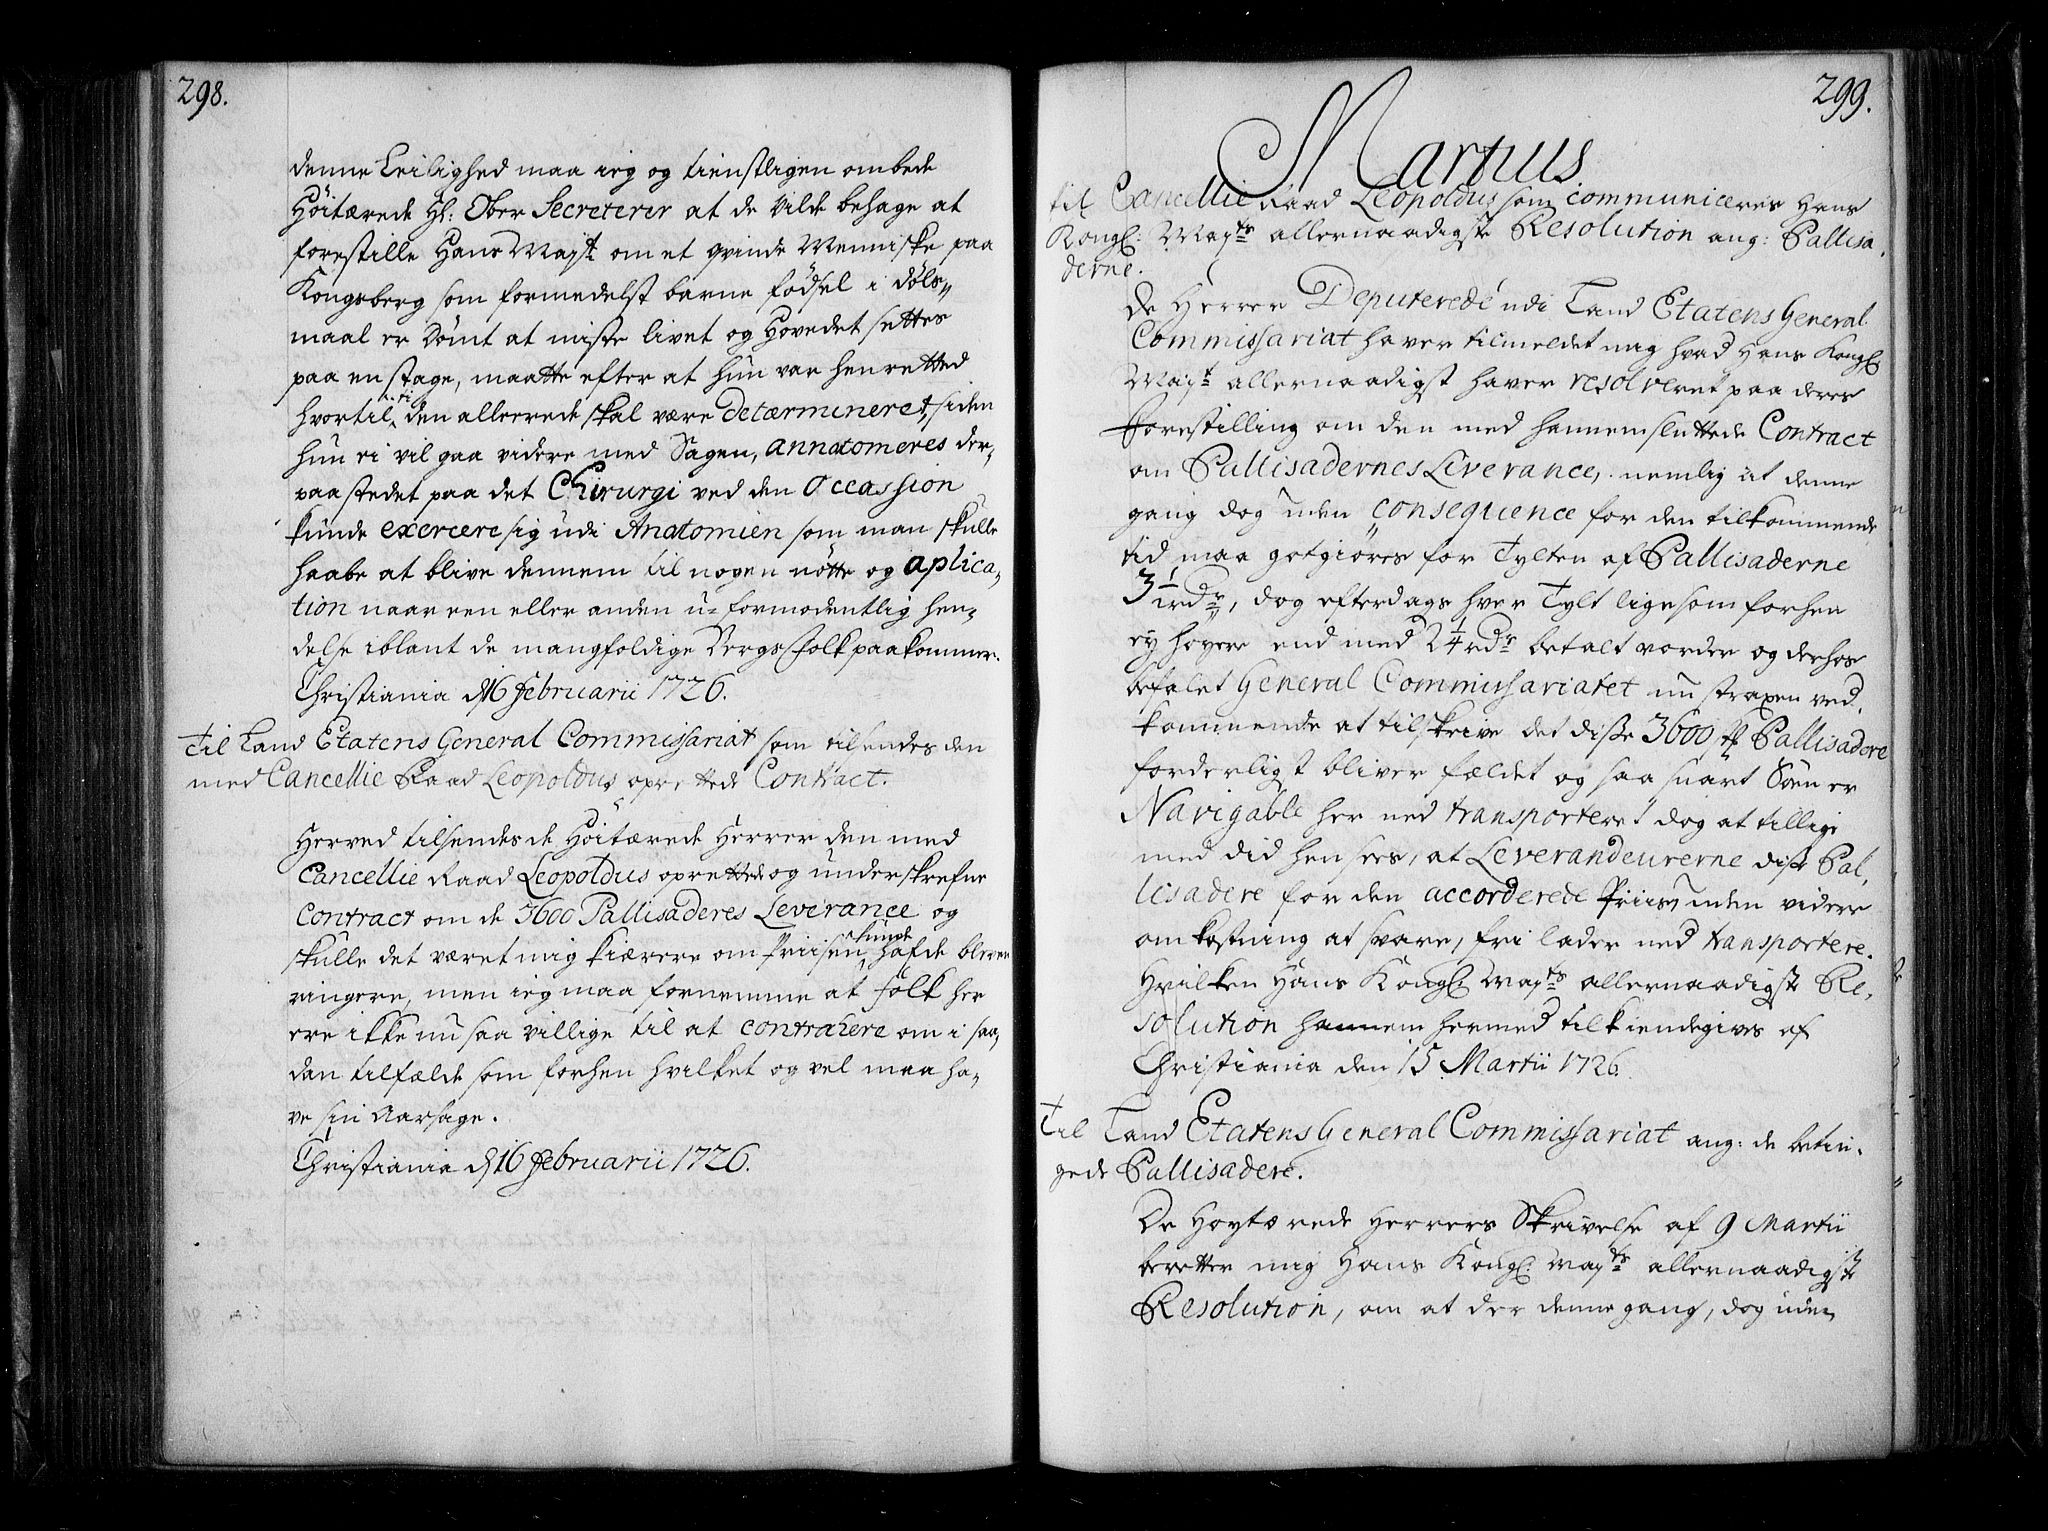 298.
denne Leilighed maa ieg og tienstligen ombede
Höitærede Hr: Ober Secreterer at de vilde behage at
forestille Hans Mayst: om et qvinde Menniske paa
Kongsberg som formedelst barne födsel i döls„
maal er Dömt at miste livet og Hovedet settes
paa en stage, maatte efter at hun var henretted
hvortil tiden allerrede skal være Determineret, siden
hun ei vil gaa videre med Sagen, annatomeres der„
paa stedet paa det Chirurgi ved den Occassion
kunde exercere sig udi Anatomien som man skulle
haabe at blive dennem til nogen nötte og aplica„
tion naar een eller anden u-formodentlig hen„
delse iblant de mangfoldige Bergs Folk paakommer.
Christiania d 16 Februarii 1726.
Til Land Etatens General Commissariat som tilsendes den
med Cancellie Raad Leopoldus oprettede Contract.
Herved tilsendes de Höitærede Herrer den med
Cancellie Raad Leopoldus oprettede og underskrefne
Contract om de 3600 Pallisaderes Leverance og
skulle det været mig kiærere om Priisen kunde hafde bleven
ringere, men ieg maa fornemme at folk her
ere ikke nu saa villige til at contrahere om i saa„
dan tilfælde som forhen hvilket og vel maa ha„
ve sin Aarsage.
Christiania d 16 Februarii 1726.
299.
Martius
til Cancellie Raad Leopoldus som communiceres Hans
Kongl: Mayts allernaadigste Resolution ang: Pallisa„
derne.
De Herrer Deputerede udi Land Etatens General
Commissariat haver tilmeldet mig hvad Hans Kongl
Mayst allernaadigst haver resolveret paa deres
Forestilling om den med hannem sluttede Contract
om Pallisadernes Leverance, nemlig at denne
gang dog uden consequence for den tilkommende
tid maa gotgiöres for Tylten af Pallisaderne
3½ rdr, dog efterdags hver Tylt ligesom forhen
ey hoyere end med 2¼ rdr betalt vorder og derhos
befalet General Commissariatet nu straxen ved„
kommende at tilskrive det disse 3600 st Pallisadere
forderligst bliver fældet og saa snart Söen er
Navigable her ned transporteret dog at tillige
med did hen sees, at Leverandeurerne disse Pal„
lisadere for den accorderede Priis, uden videre
omkostning at svare, fri lader ned transportere.
Hvilken Hans Kongl: Mayts allernaadigste Re„
solution hannem hermed tilkiendegives af
Christiania den 15 Martii 1726.
Til Land Etatens General Commissariat ang: de betin„
gede Pallisadere.
De Hoytærede Herrers Skrivelse af 9 Martii
beretter mig Hans Kongl: Mayts allernaadigste
Resolution, om at der denne gang, dog uden